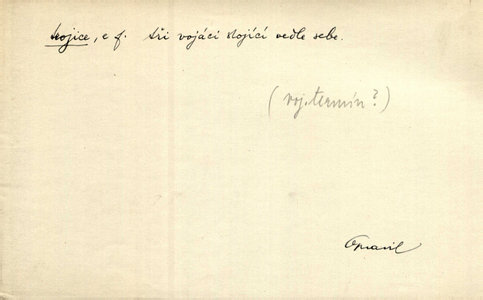 trojice, e f. tři vojáci stojící vedle sebe.
(voj. termín?)
Opravil